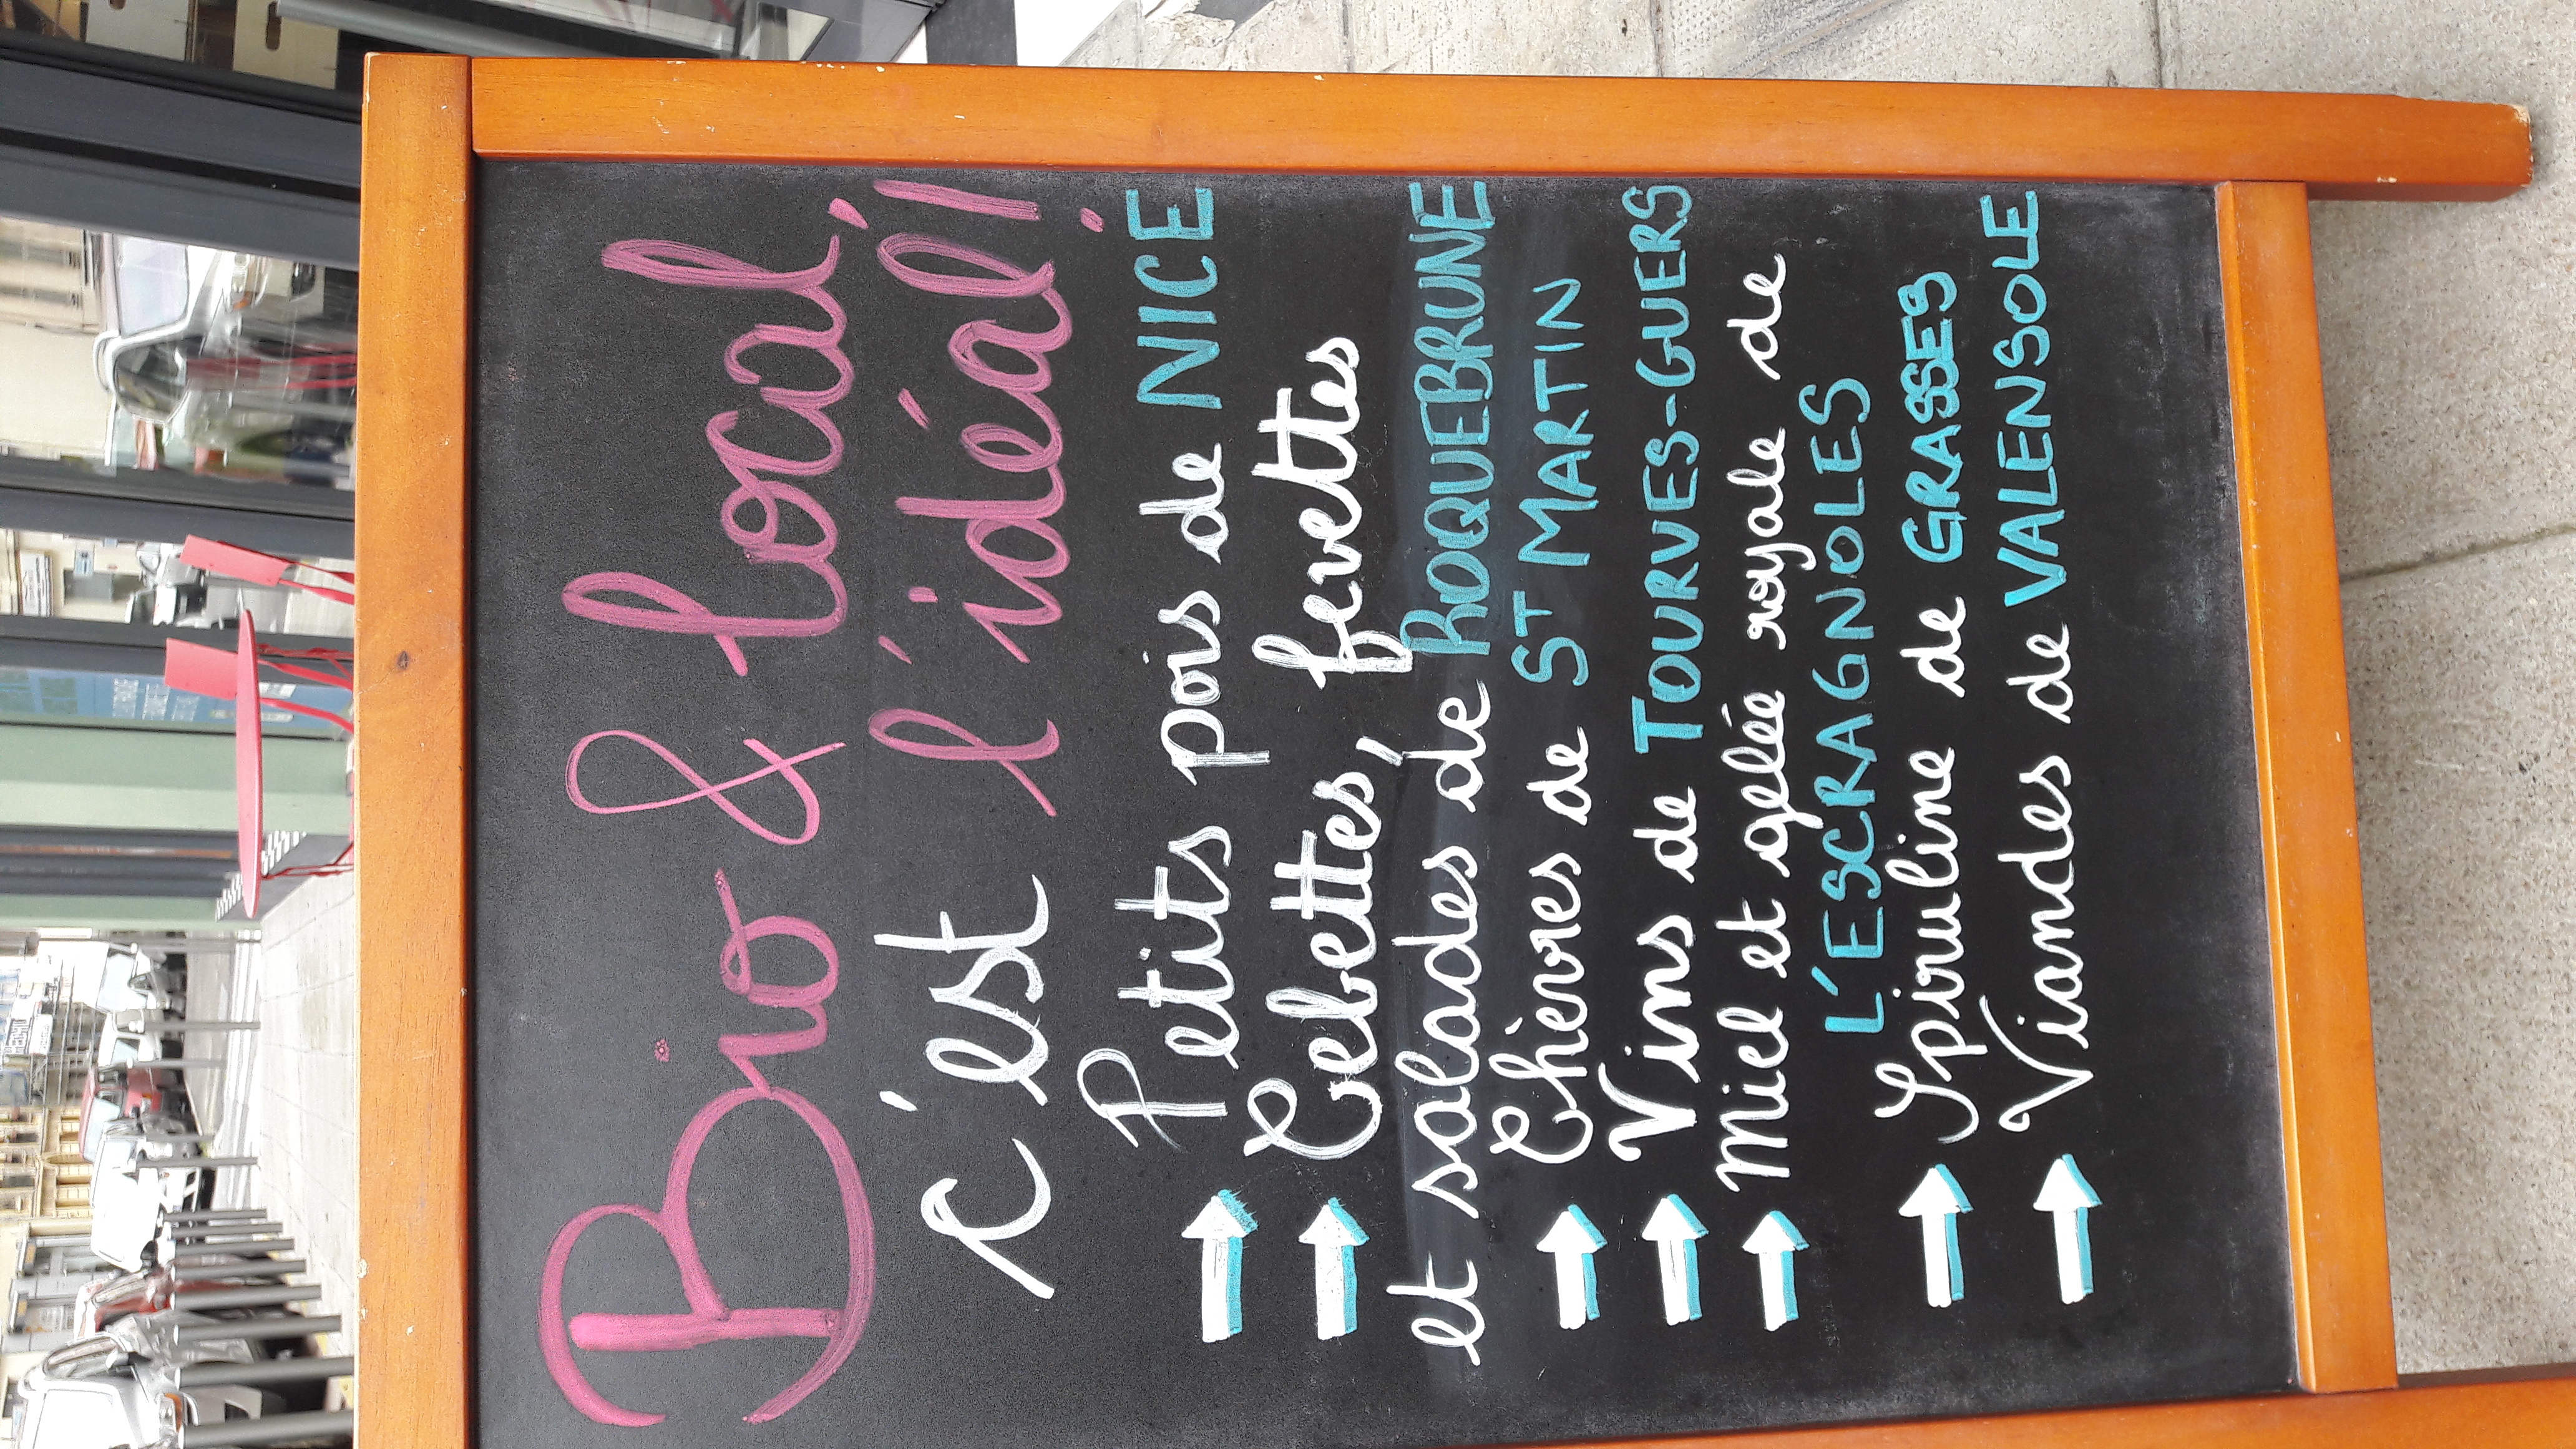 Bio & local,
c'est l'idéal!
Petits pois de NICE
Cebettes, fevettes
et salades de ROQUEBRUNE
Chèvres de ST MARTIN
Vins de TOURVES-GUERS
Miel et gelée royale de
L'ESCRAGNOLES
Spiruline de GRASSES
Viandes de VALENSOLE